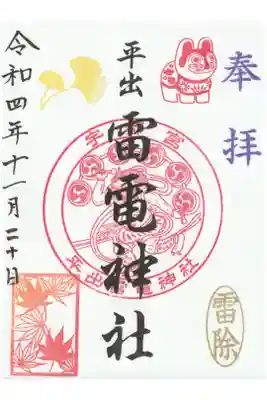 奉拝
平出
雷電神社
宇都宮
平出雷電神社
雷除
令和四年十一月二十日